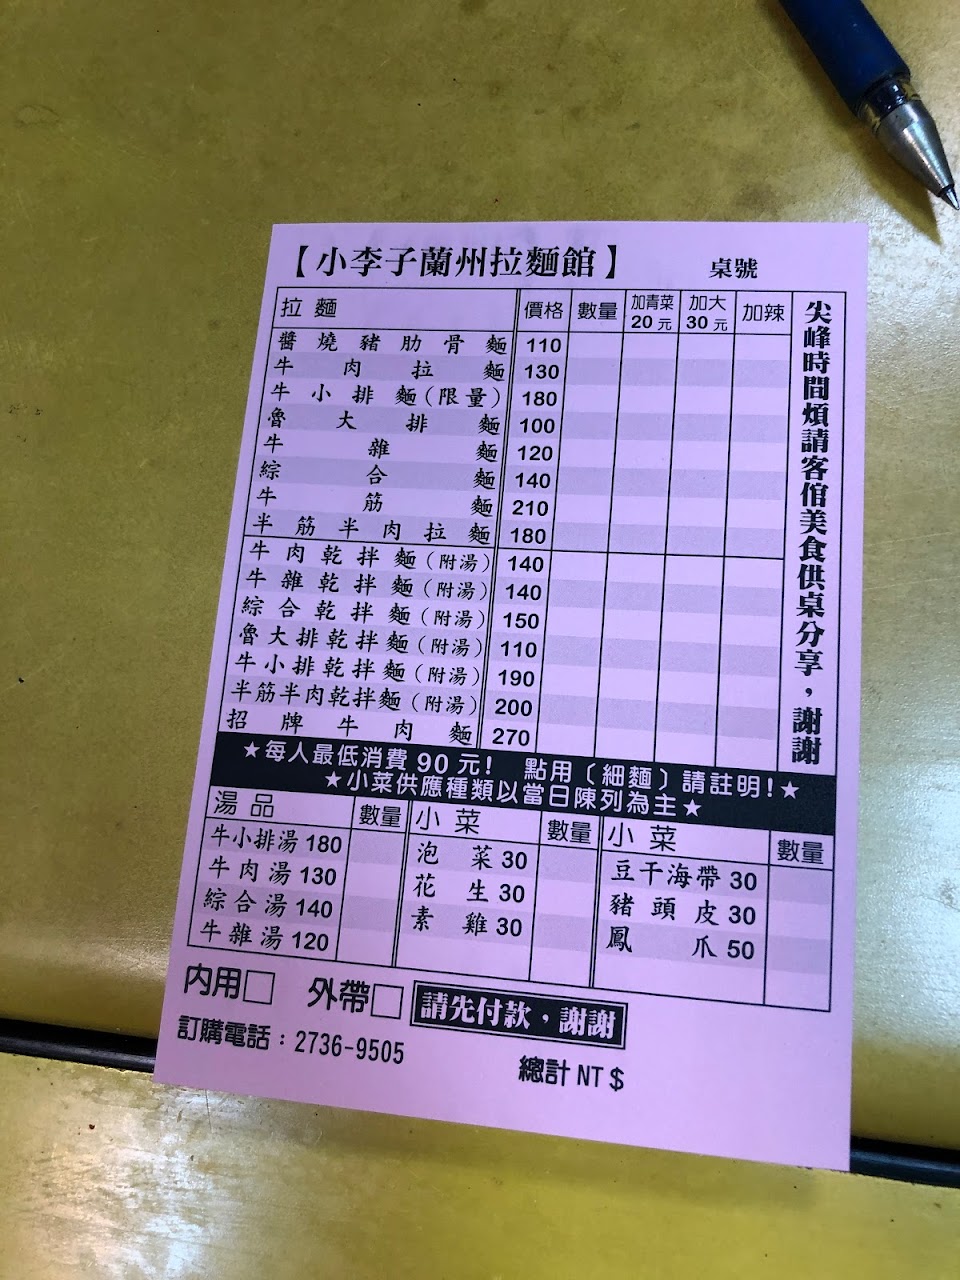 【小李子蘭州拉麵館】 桌號
拉麵 價格 數量 加青菜20元 加大30元 加辣
醬燒豬肋骨麵 110
牛肉拉麵 130
牛小排麵(限量) 180
魯大排麵 100
牛雜麵 120
綜合麵 140
牛筋麵 210
半筋半肉拉麵 180
牛肉乾拌麵(附湯) 140
牛雜乾拌麵(附湯) 140
綜合乾拌麵(附湯) 150
魯大排乾拌麵(附湯) 110
牛小排乾拌麵(附湯) 190
半筋半肉乾拌麵(附湯) 200
招牌牛肉麵 270
尖峰時間煩請客倌美食供桌分享，謝謝
★每人最低消費90元! 點用〔細麵〕請註明!★
★小菜供應種類以當日陳列為主★
湯品 數量 小菜 數量 小菜 數量
牛小排湯180 泡菜30 豆干海帶30
牛肉湯130 花生30 豬頭皮30
綜合湯140 素雞30 鳳爪50
牛雜湯120
內用□ 外帶□ 請先付款，謝謝
訂購電話：2736-9505
總計NT$